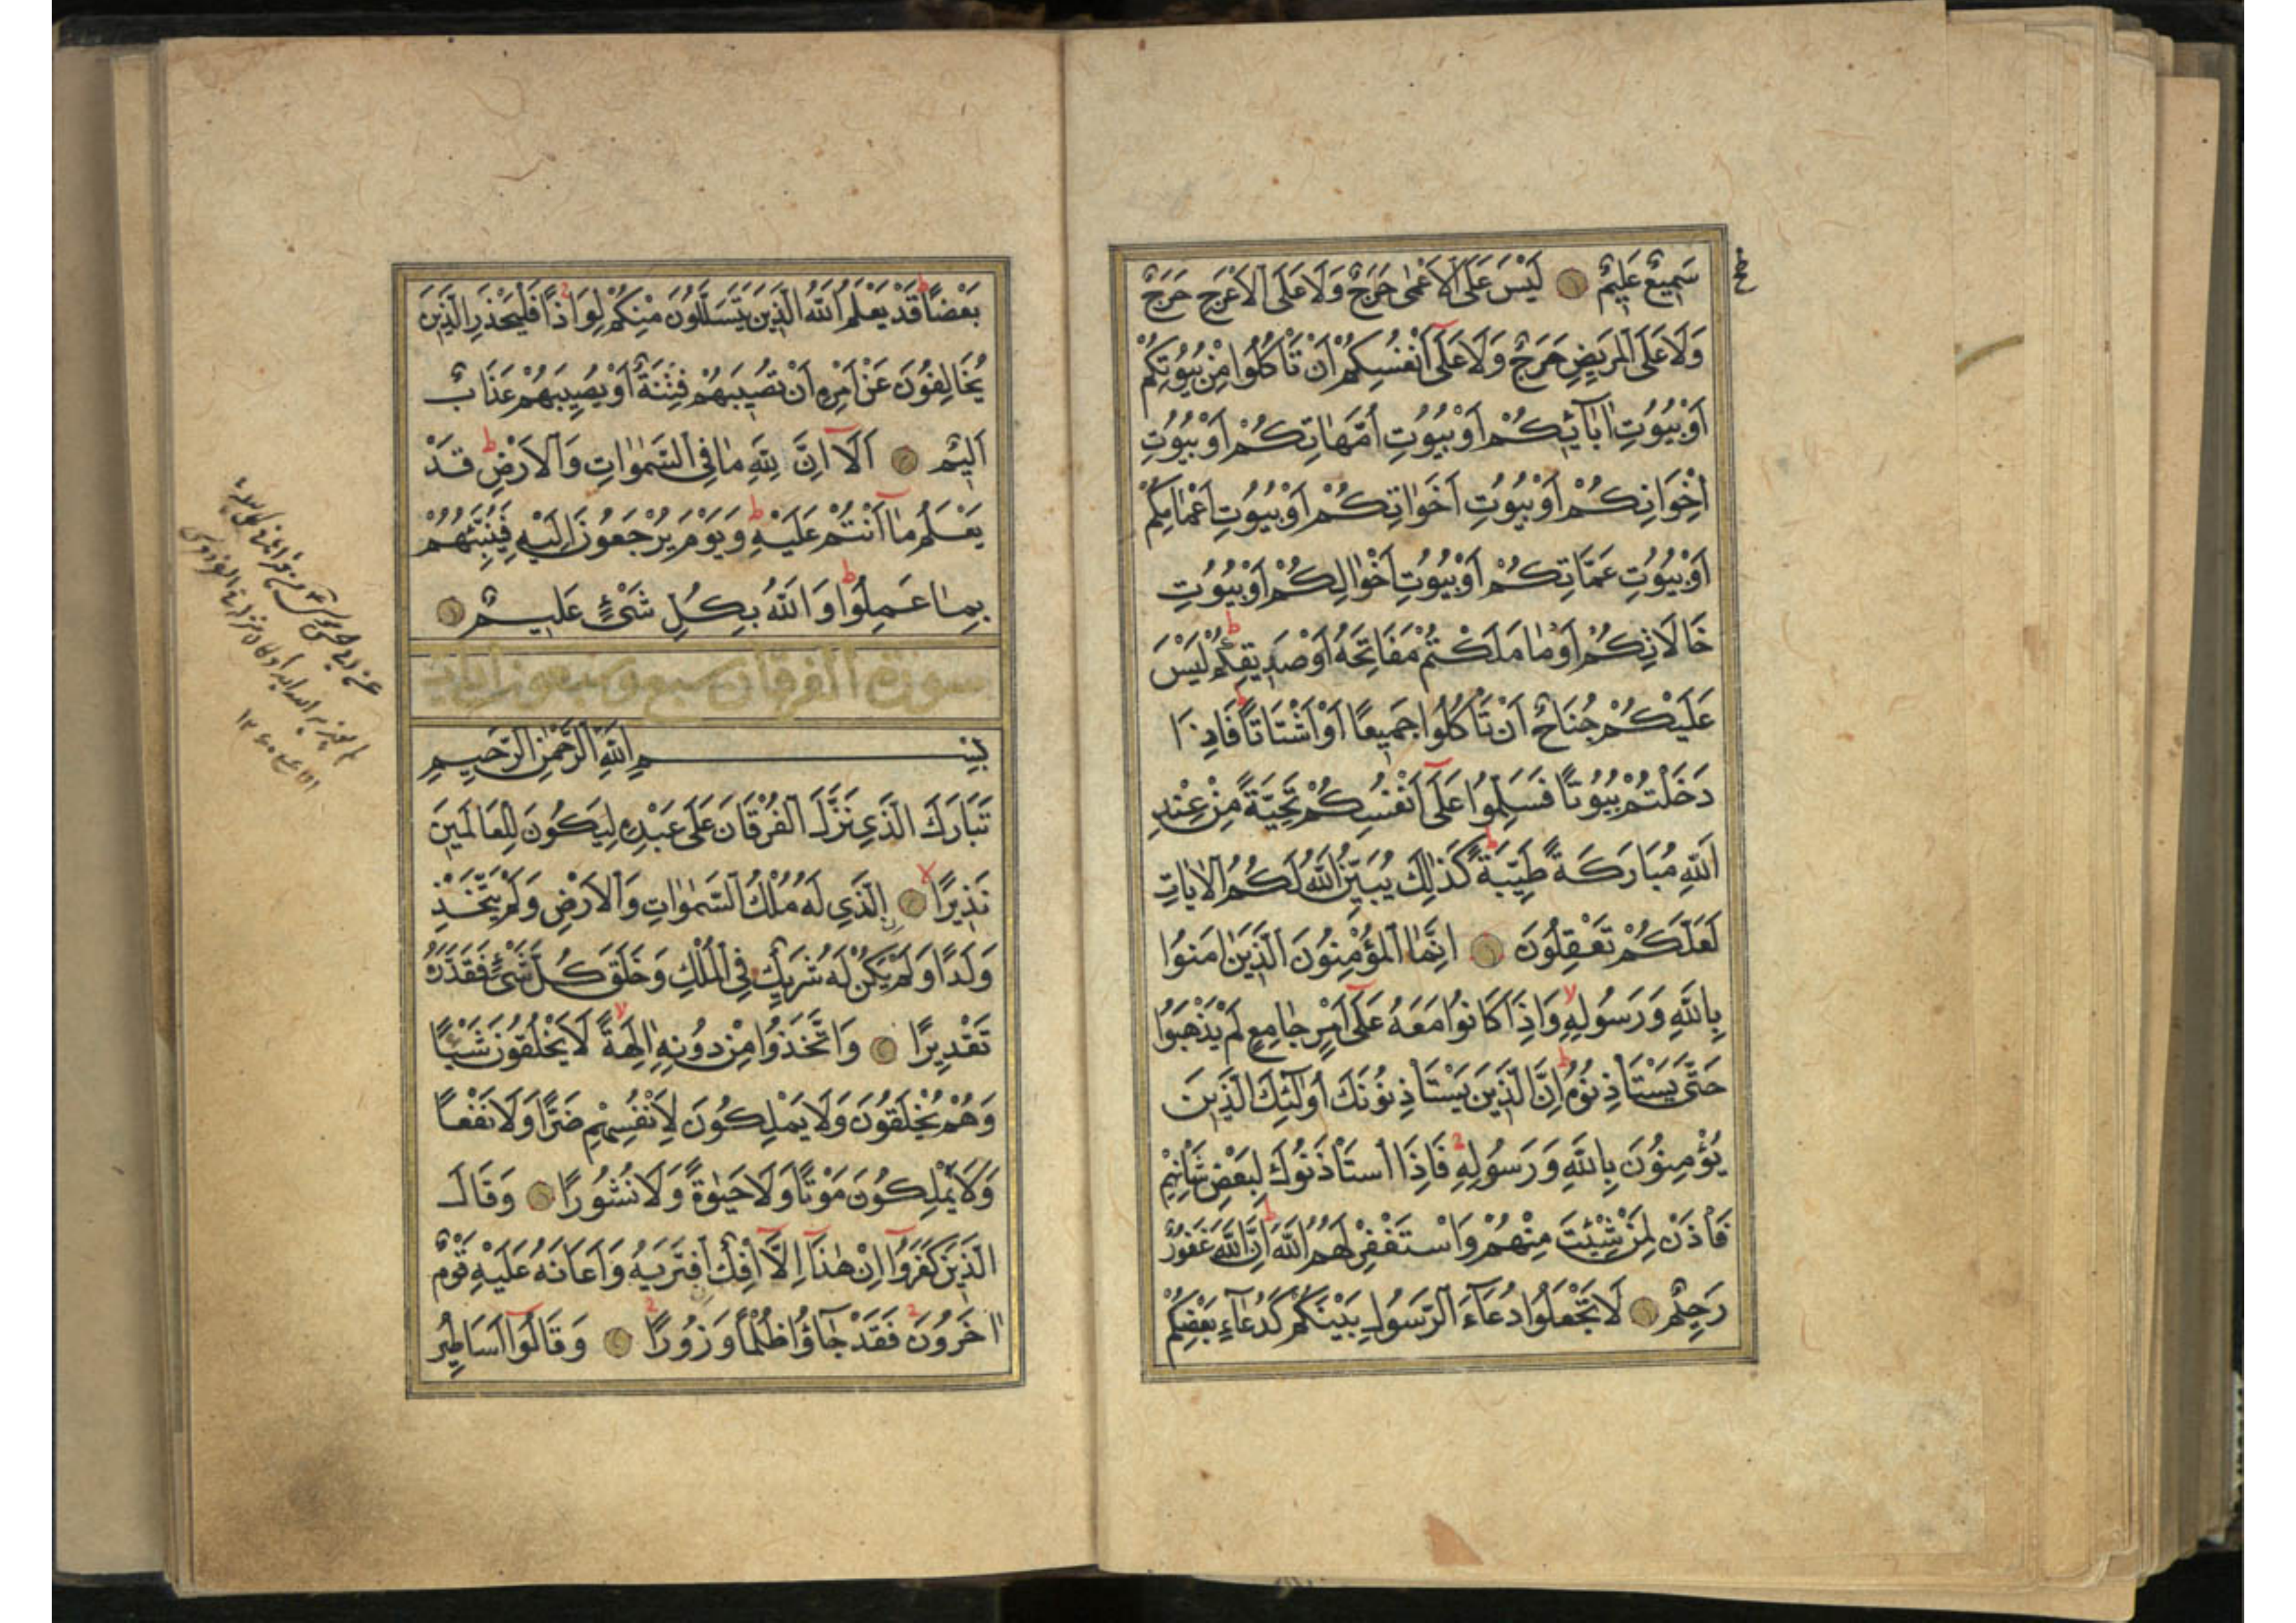 سَمِيعٌ عَلِيمٌ لَيْسَ عَلَى الْاَعْمٰى حَرَجٌ وَلَا عَلَى الْاَعْرَجِ حَرَجٌ
وَلَا عَلَى الْمَرِيضِ حَرَجٌ وَلَا عَلٰٓى اَنْفُسِكُمْ اَنْ تَأْكُلُوا مِنْ بُيُوتِكُمْ
اَوْ بُيُوتِ اٰبَآئِكُمْ اَوْ بُيُوتِ اُمَّهَاتِكُمْ اَوْ بُيُوتِ
اِخْوَانِكُمْ اَوْ بُيُوتِ اَخَوَاتِكُمْ اَوْ بُيُوتِ اَعْمَامِكُمْ
اَوْ بُيُوتِ عَمَّاتِكُمْ اَوْ بُيُوتِ اَخْوَالِكُمْ اَوْ بُيُوتِ
خَالَاتِكُمْ اَوْ مَا مَلَكْتُمْ مَفَاتِحَهُ اَوْ صَدِيقِكُمْ ط لَيْسَ
عَلَيْكُمْ جُنَاحٌ اَنْ تَأْكُلُوا جَمِيعًا اَوْ اَشْتَاتًا ط فَاِذَا
دَخَلْتُمْ بُيُوتًا فَسَلِّمُوا عَلٰٓى اَنْفُسِكُمْ تَحِيَّةً مِنْ عِنْدِ
اللّٰهِ مُبَارَكَةً طَيِّبَةً ط كَذٰلِكَ يُبَيِّنُ اللّٰهُ لَكُمُ الْاٰيَاتِ
لَعَلَّكُمْ تَعْقِلُونَ اِنَّمَا الْمُؤْمِنُونَ الَّذِينَ اٰمَنُوا
بِاللّٰهِ وَرَسُولِهِ لا وَاِذَا كَانُوا مَعَهُ عَلٰٓى اَمْرٍ جَامِعٍ لَمْ يَذْهَبُوا
حَتّٰى يَسْتَأْذِنُوهُ ط اِنَّ الَّذِينَ يَسْتَأْذِنُونَكَ اُولٰٓئِكَ الَّذِينَ
يُؤْمِنُونَ بِاللّٰهِ وَرَسُولِهِ فَاِذَا اسْتَأْذَنُوكَ لِبَعْضِ شَأْنِهِمْ
فَأْذَنْ لِمَنْ شِئْتَ مِنْهُمْ وَاسْتَغْفِرْ لَهُمُ اللّٰهَ ط اِنَّ اللّٰهَ غَفُورٌ
رَحِيمٌ لَا تَجْعَلُوا دُعَآءَ الرَّسُولِ بَيْنَكُمْ كَدُعَآءِ بَعْضِكُمْ
بَعْضًا ط قَدْ يَعْلَمُ اللّٰهُ الَّذِينَ يَتَسَلَّلُونَ مِنْكُمْ لِوَاذًا فَلْيَحْذَرِ الَّذِينَ
يُخَالِفُونَ عَنْ اَمْرِهِ اَنْ تُصِيبَهُمْ فِتْنَةٌ اَوْ يُصِيبَهُمْ عَذَابٌ
اَلِيمٌ اَلَآ اِنَّ لِلّٰهِ مَا فِي السَّمٰوَاتِ وَالْاَرْضِ ط قَدْ
يَعْلَمُ مَآ اَنْتُمْ عَلَيْهِ ط وَيَوْمَ يُرْجَعُونَ اِلَيْهِ فَيُنَبِّئُهُمْ
بِمَا عَمِلُوا ط وَاللّٰهُ بِكُلِّ شَيْءٍ عَلِيمٌ
سورة الفرقان سبع وسبعون ايات
بِسْمِ اللّٰهِ الرَّحْمٰنِ الرَّحِيمِ
تَبَارَكَ الَّذِي نَزَّلَ الْفُرْقَانَ عَلٰى عَبْدِهِ لِيَكُونَ لِلْعَالَمِينَ
نَذِيرًا لا اَلَّذِي لَهُ مُلْكُ السَّمٰوَاتِ وَالْاَرْضِ وَلَمْ يَتَّخِذْ
وَلَدًا وَلَمْ يَكُنْ لَهُ شَرِيكٌ فِي الْمُلْكِ وَخَلَقَ كُلَّ شَيْءٍ فَقَدَّرَهُ
تَقْدِيرًا وَاتَّخَذُوا مِنْ دُونِهِ اٰلِهَةً لا لَا يَخْلُقُونَ شَيْئًا
وَهُمْ يُخْلَقُونَ وَلَا يَمْلِكُونَ لِاَنْفُسِهِمْ ضَرًّا وَلَا نَفْعًا
وَلَا يَمْلِكُونَ مَوْتًا وَلَا حَيٰوةً وَلَا نُشُورًا وَقَالَ
الَّذِينَ كَفَرُوٓا اِنْ هٰذَآ اِلَّآ اِفْكٌ افْتَرٰيهُ وَاَعَانَهُ عَلَيْهِ قَوْمٌ
اٰخَرُونَ فَقَدْ جَآؤُا ظُلْمًا وَزُورًا وَقَالُوٓا اَسَاطِيرُ